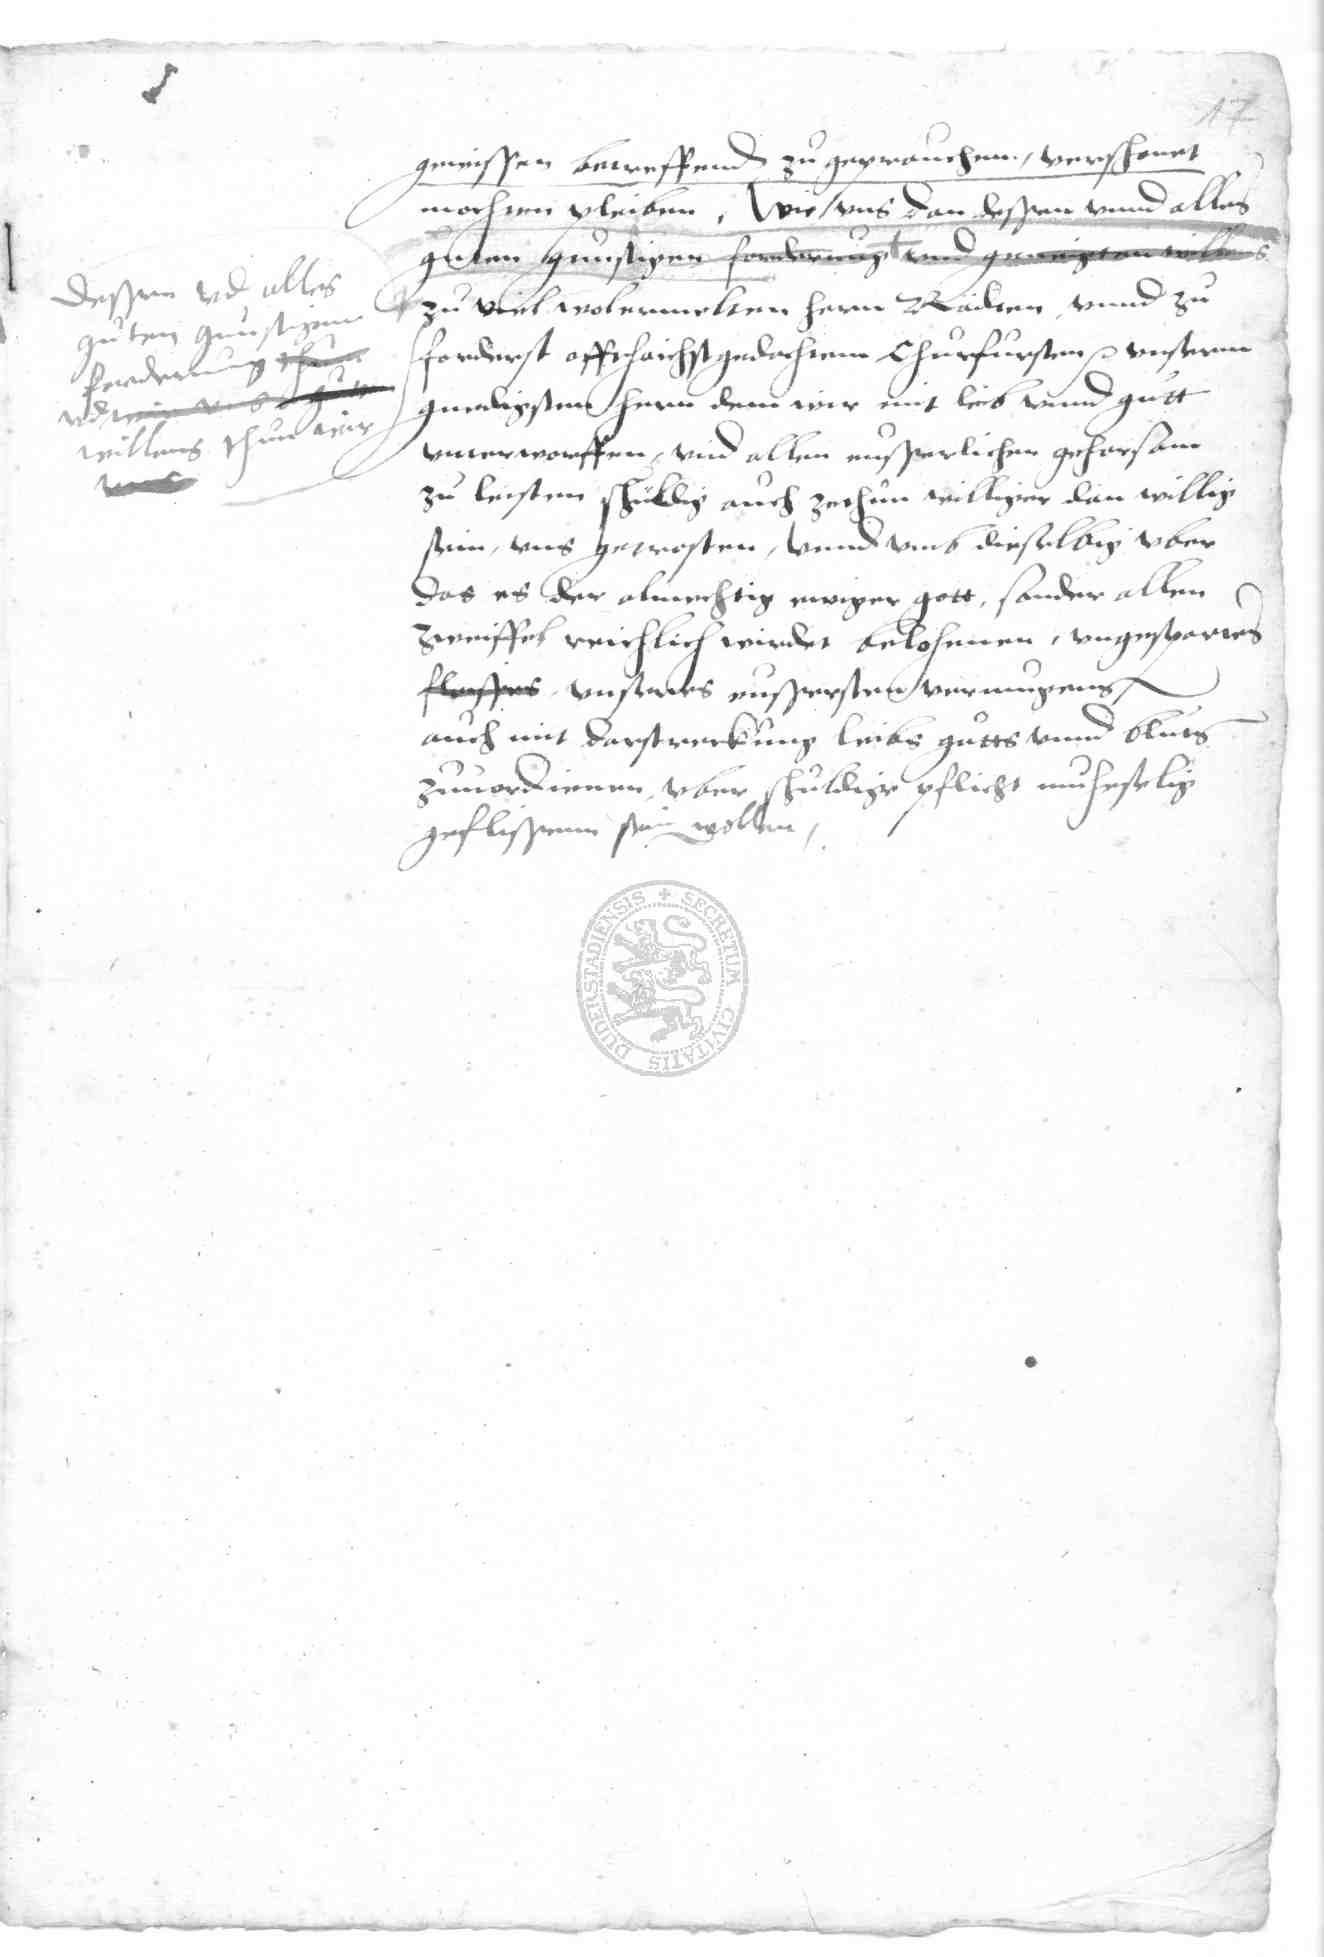 17
gewissen betreffend zu geprauchen, verschonet
mochten pleiben, Wie vns dan dessen vnnd alles
guten gunstigen forderung vnd geneigten willens
zu viel wolermelten hern Rädten, vnnd zu
forderst offthoichstgedachtem Churfursten vnserm
gnedigsten hern dem wir mit leib vnnd gutt
vnterworffen, vnd allen eusserlichen gehorsam
zu leisten schuldig auch zethun williger dan willig
sein, vns getrosten, vnnd vmb dieselbig vber
das es der almechtig ewiger gott, sonder allen
zweiffel reichlich wirdet belohenen, vngespartes
fleisses vnseres eussersten vermugens
auch mit darstreckung leibs gutts vnnd bluts
zuuordienen, vber schuldige pflicht muheselig
geflissenn sein wollen,
dessen vnd alles
guten gunstigenn
forderung thun
vnd guten
willens thun wir
vns
DUDERSTADIENSIS + SECRETUM CIVITATIS